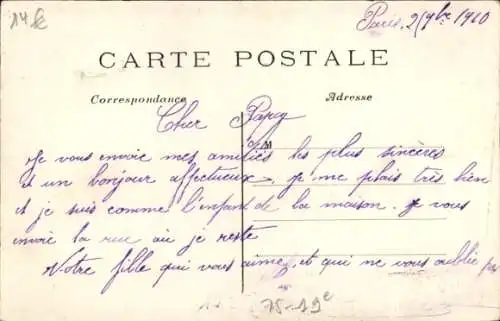 14 €
Paris, 2 / 9bre 1910
CARTE POSTALE
Correspondance
Adresse
Cher Papa
M
Je vous envoie mes amitiés les plus sincères
et un bonjour affectueux, je me plais très bien
et je suis comme l'enfant de la maison. Je vous
envoie la rue où je reste
Notre fille qui vous aimez et qui ne vous oublie pas
75-19e